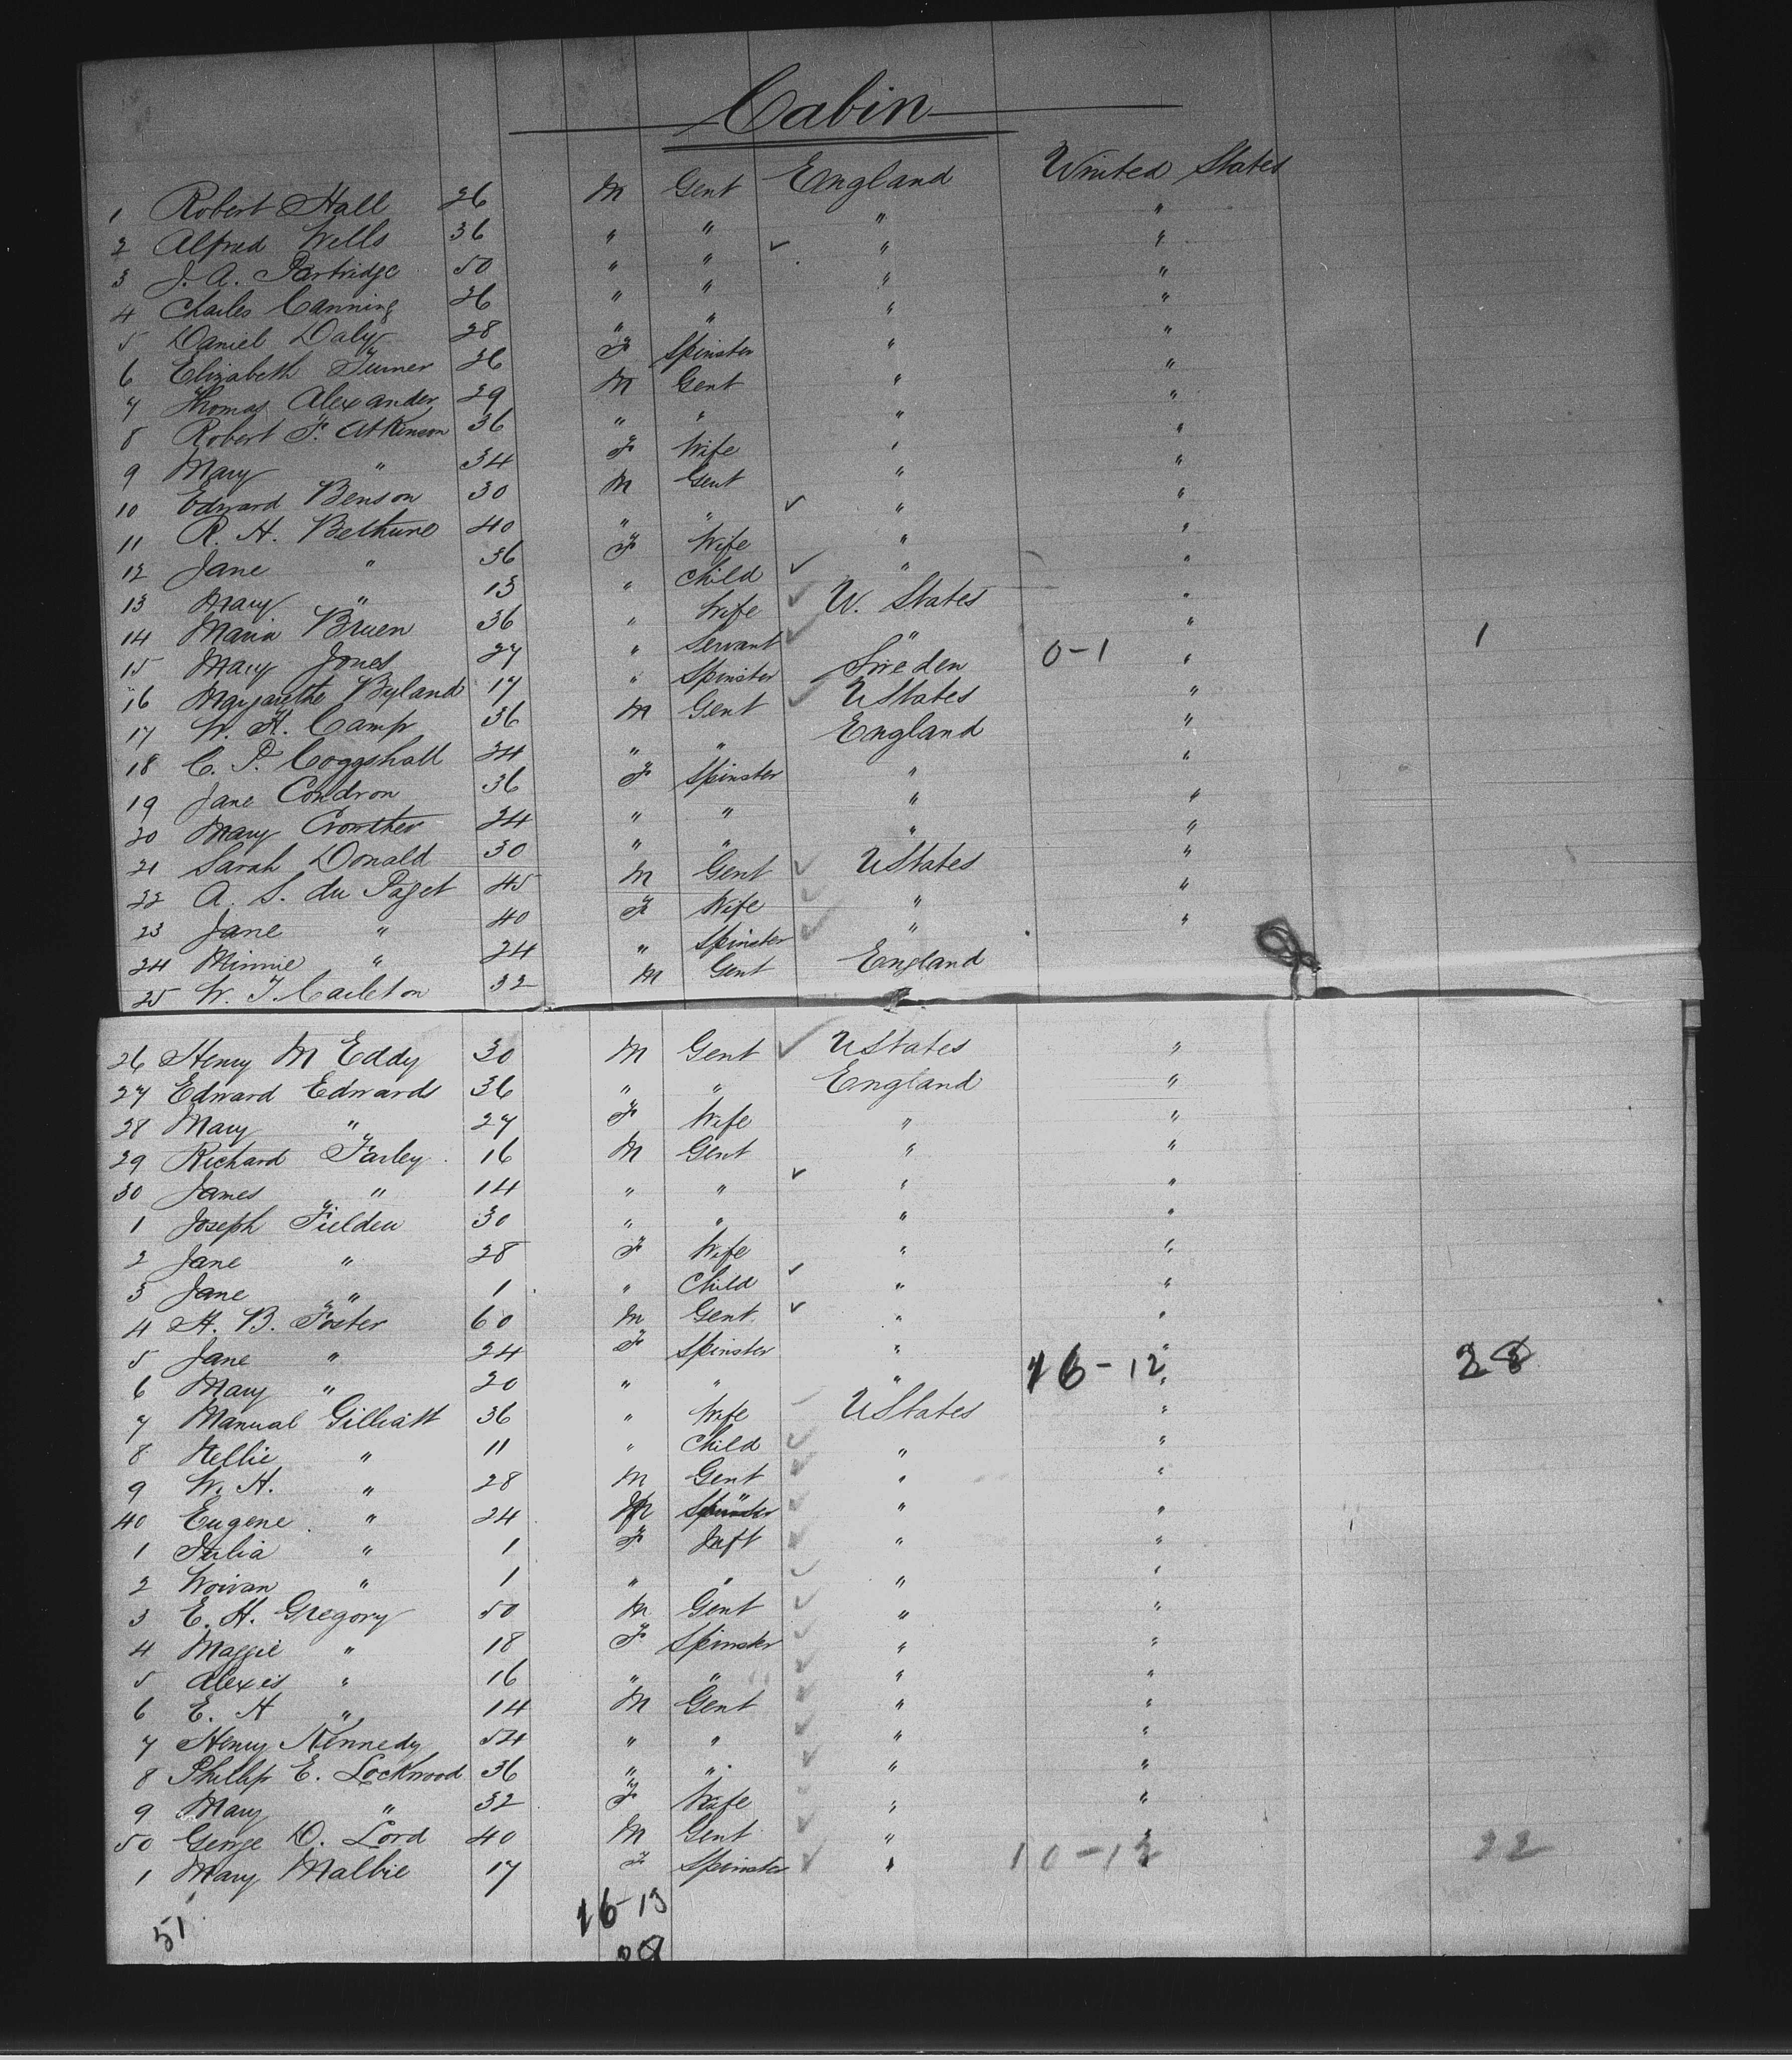 Cabin
1 Robert Hall 26 M Gent England United States
2 Alfred Wells 36 " " " "
3 J. A. Partridge 50 " " " "
4 Charles Canning 26 " " " "
5 Daniel Daly 28 " " " "
6 Elizabeth Turner 26 F Spinster " "
7 Thomas Alexander 29 M Gent " "
8 Robert F. Atkinson 36 " " " "
9 Mary " 34 F Wife " "
10 Edward Benson 30 M Gent " "
11 R. H. Bethune 40 " " " "
12 Jane " 36 F Wife " "
13 Mary " 13 " Child " "
14 Maria Bruen 36 " Wife U. States "
15 Mary Jones 27 " Servant " "
16 Margarethe Byland 17 " Spinster Sweden 0-1 " 1
17 W. H. Camp 36 M Gent UStates "
18 C. P. Coggshall 34 " " England "
19 Jane Condron 36 F Spinster " "
20 Mary Crowther 24 " " " "
21 Sarah Donald 30 " " " "
22 A. S. du Paget 45 M Gent UStates "
23 Jane " 40 F Wife " "
24 Minnie " 24 " Spinster " "
25 W. T. Carleton 32 M Gent England
26 Henry M Eddy 30 M Gent UStates "
27 Edward Edwards 36 " " England "
28 Mary " 27 F Wife " "
29 Richard Farley 16 M Gent " "
30 James " 14 " " " "
1 Joseph Fielden 30 " " " "
2 Jane " 28 F Wife " "
3 Jane " 1 " Child " "
4 H. B. Foster 60 M Gent " "
5 Jane " 24 F Spinster " "
6 Mary " 20 " " " 16-12 " 28
7 Manual Gilliatt 36 " Wife UStates "
8 Nellie " 11 " Child " "
9 W. H. " 28 M Gent " "
40 Eugene " 24 M " " "
1 Julia " 1 F Inft " "
2 " 1 " " " "
3 E. H. Gregory 50 M Gent " "
4 Maggie " 18 F Spinster " "
5 Alexis " 16 " " " "
6 E. H " 14 M Gent " "
7 Henry Kennedy 54 " " " "
8 Phillip E. Lockwood 36 " " " "
9 Mary " 32 F Wife " "
50 George D. Lord 40 M Gent " "
1 Mary Malbie 17 F Spinster " 10-12 " 22
51
16-13
28